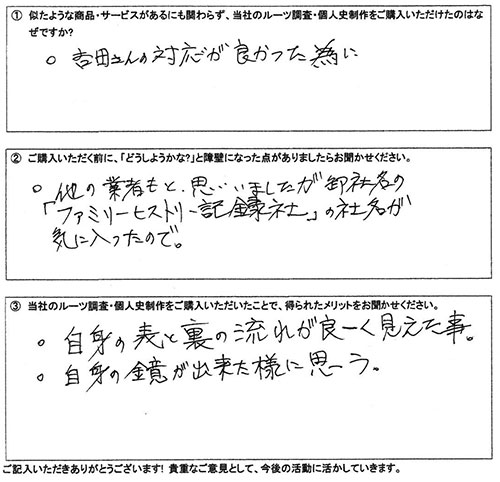 ① 似たような商品・サービスがあるにも関わらず、当社のルーツ調査・個人史制作をご購入いただけたのはな
ぜですか?
○ 吉田さんの対応が良かった為に
② ご購入いただく前に、「どうしようかな?」と障壁になった点がありましたらお聞かせください。
○ 他の業者もと、思いいましたが御社名の
「ファミリーヒストリー記録社」の社名が
気に入ったので。
③ 当社のルーツ調査・個人史制作をご購入いただいたことで、得られたメリットをお聞かせください。
○ 自身の表と裏の流れが良ーく見えた事。
○ 自身の鏡が出来た様に思う。
ご記入いただきありがとうございます! 貴重なご意見として、今後の活動に活かしていきます。